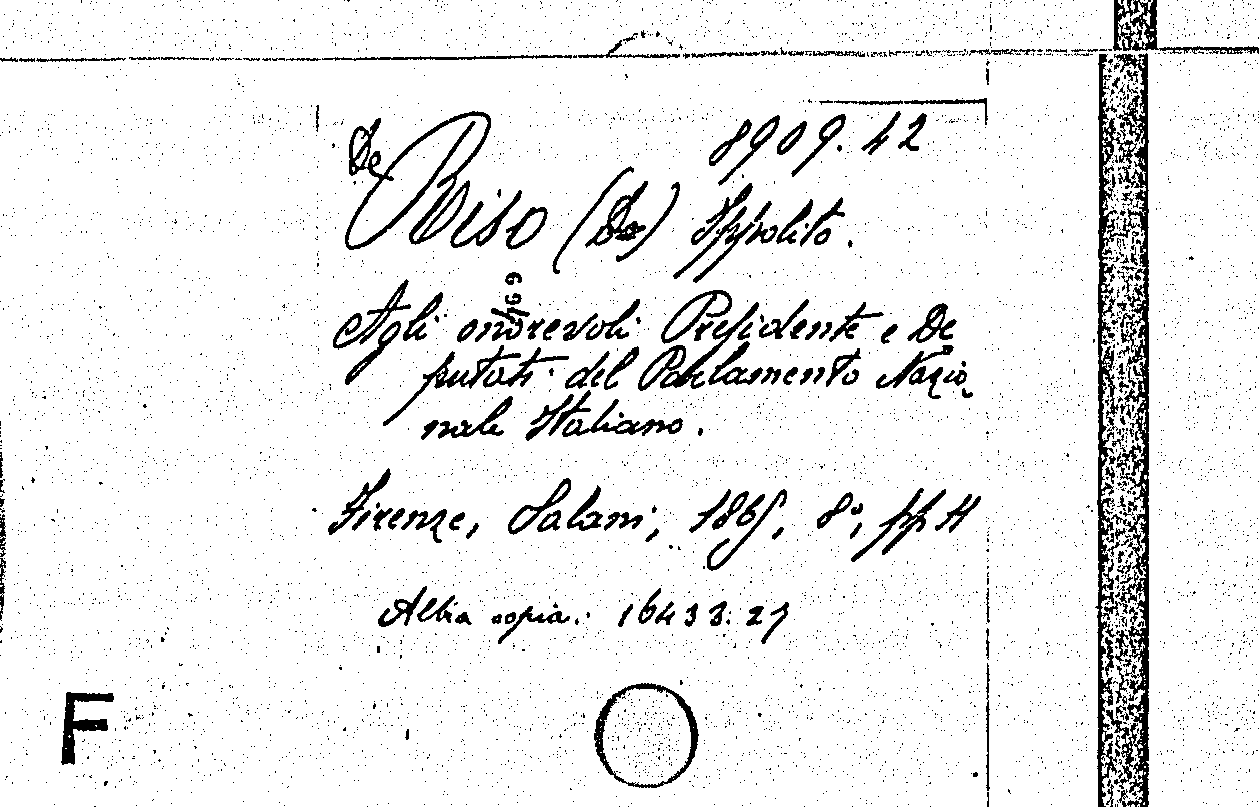 8909.42
De Riso (De) Ippolito.
Agli onorevoli Presidente e De
putati del Parlamento Nazio
nale Italiano.
Firenze, Salani, 1865, 8°, pp
Altra copia: 16433.27
F